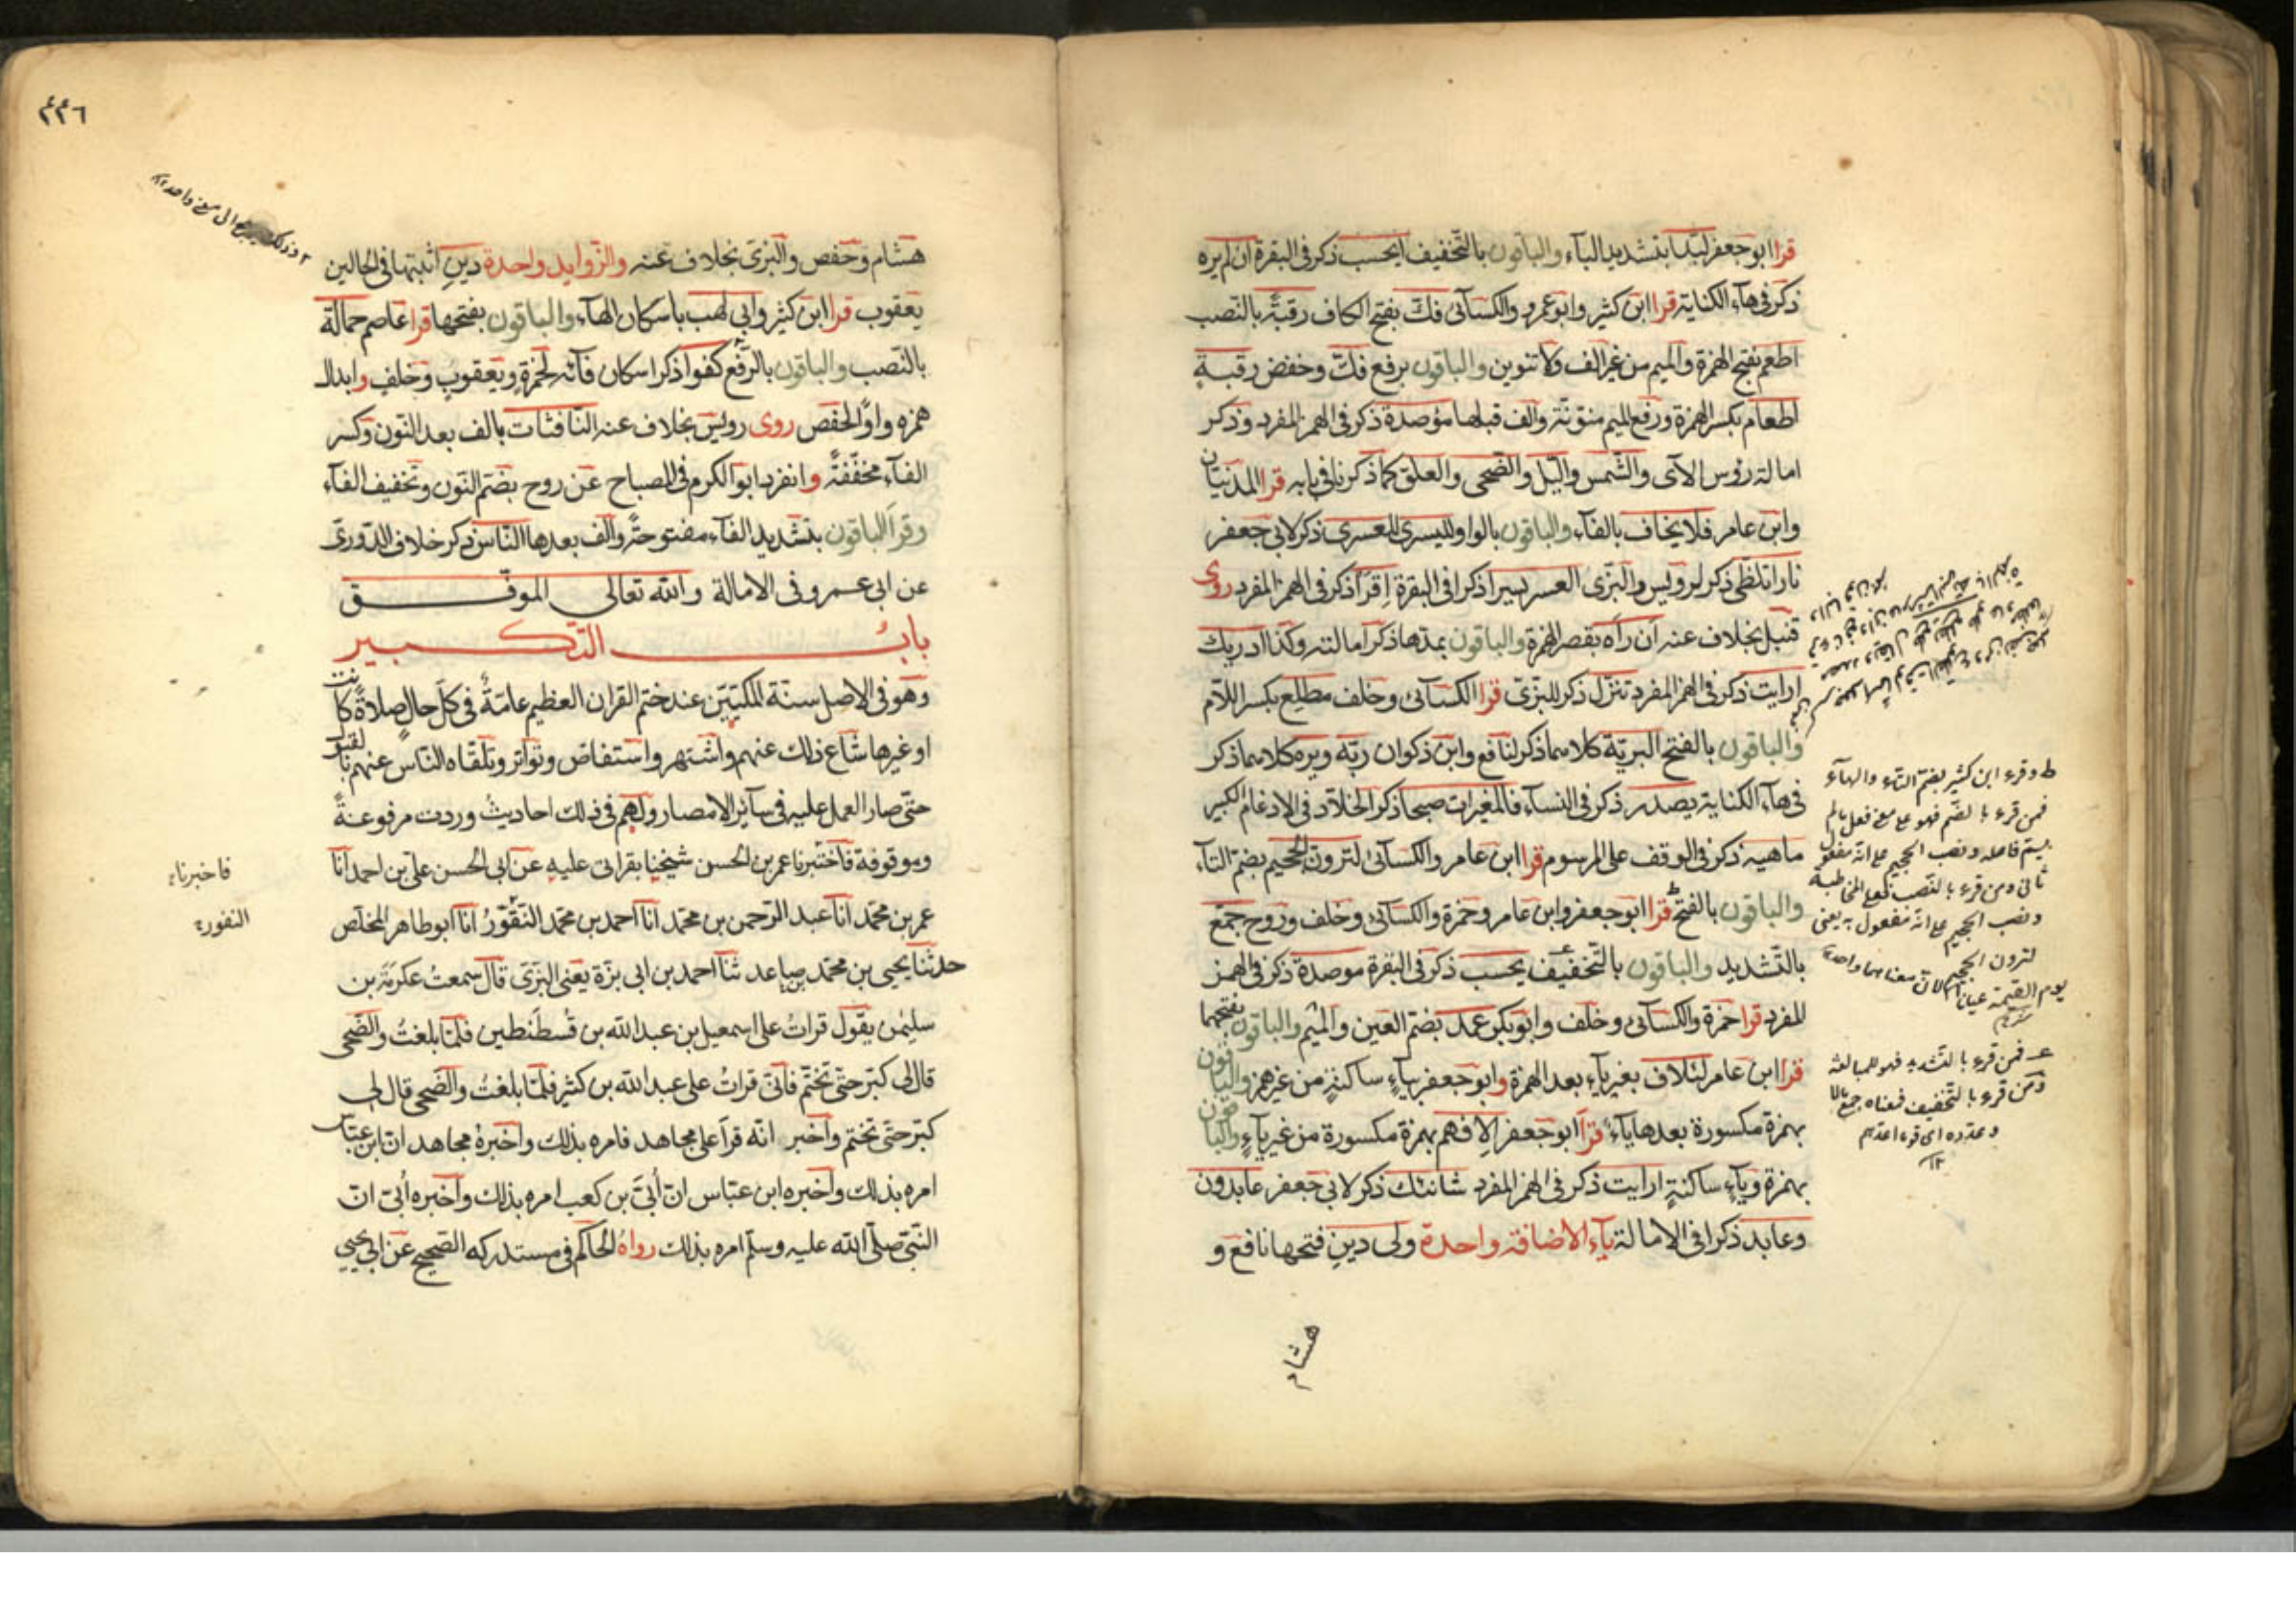 قرا ابو جعفر لبدا بتشديد الباء والباقون بالتخفيف ايحسب ذكر فى البقرة ان لم يره
ذكر فى هاء الكناية قرا ابن كثير وابو عمرو والكسآئى فك بفتح الكاف رقبة بالنصب
اطعم بفتح الهمزة والميم من غير الف ولا تنوين والباقون برفع فكّ وخفض رقبةٍ
اطعام بكسر الهمزة ورفع الميم منونة والف قبلها مؤصدة ذكر فى الهمز المفرد وذكر
امالة رؤس الآى والشمس واليل والضحى والعلق كما ذكرنا فى بابه قرا المدنيان
وابن عامر فلا يخاف بالفآء والباقون بالواو لليسرى للعسرى ذكر لابى جعفر
نارا تلظى ذكر لرويس والبزى العسر يسرا ذكرا فى البقرة اقرأ ذكر فى الهمز المفرد روى
قنبل بخلاف عنه ان رآه بقصر الهمزة والباقون بمدها ذكر امالته وكذا ادريك
ارايت ذكر فى الهمز المفرد تنزل ذكر للبزى قرا الكسآئى وخلف مطلع بكسر اللام
والباقون بالفتح البرية كلاهما ذكر لنافع وابن ذكوان ربه ويره كلاهما ذكر
فى هاء الكناية يصدر ذكر فى النسآء فالمغيرات صبحا ذكرا لخلاد فى الادغام الكبير
ماهيه ذكر فى الوقف على المرسوم قرا ابن عامر والكسآئى لترون الجحيم بضم التآء
والباقون بالفتح قرا ابو جعفر وابن عامر وحمزة والكسآئى وخلف وروح جمع
بالتشديد والباقون بالتخفيف يحسب ذكر فى البقرة موصدة ذكر فى الهمز
المفرد قرا حمزة والكسآئى وخلف وابو بكر عمد بضم العين والميم والباقون بفتحهما
قرا ابن عامر لئلاف بغير يآء بعد الهمزة وابو جعفر بياء ساكنة من غير همز والباقون
بهمزة مكسورة بعدها يآء قرا ابو جعفر الافهم بهمزة مكسورة من غير يآء والباقون
بهمزة ويآء ساكنة ارايت ذكر فى الهمز المفرد شانئك ذكر لابى جعفر عابدون
وعابد ذكرا فى الامالة يآء الاضافة واحدة ولى دين فتحها نافع و
هشام
ط وقرء ابن كثير بضم التاء والهاء
فمن قرء بالضم فهو على معنى فعل مالم
يسم فاعله ونصب الجحيم على انه مفعول
ثانى ومن قرء بالنصب فعلى المخاطبة
ونصب الجحيم على انه مفعول به يعنى
لترون الجحيم
يوم القيمة عيانا لان معناهما واحد
ع فمن قرء بالتشديد فهو للمبالغة
ومن قرء بالتخفيف فمعناه جمع مالا
وعدده اى قوما اعدهم
١٢
٤٤٦
هشام وحفص والبزى بخلاف عنه والزوايد واحدة دين اثبتها فى الحالين
يعقوب قرا ابن كثير وابى لهب باسكان الهآء والباقون بفتحها قرا عاصم حمالة
بالنصب والباقون بالرفع كفوا ذكر اسكان فآئه لحمزة ويعقوب وخلف وابدال
همزه واوًا لحفص روى رويس بخلاف عنه النافثات بالف بعد النون وكسر
الفآء مخففةً وانفرد ابو الكرم فى المصباح عن روح بضم النون وتخفيف الفآء
وقرا الباقون بتشديد الفآء مفتوحة والف بعدها الناس ذكر خلاف الدورى
عن ابى عمرو فى الامالة والله تعالى الموفق
باب التكبير
وهو فى الاصل سنة المكيين عند ختم القران العظيم عامة فى كل حال صلاة كانت
او غيرها شاع ذلك عنهم واشتهر واستفاض وتواتر وتلقاه الناس عنهم بالقبول
حتى صار العمل عليه فى سآئر الامصار ولهم فى ذلك احاديث وردت مرفوعة
وموقوفة فاختبرنا عمر بن الحسن شيخنا بقراتى عليه عن ابى الحسن على بن احمد انا
عمر بن محمد انا عبد الرحمن بن محمد انا احمد بن محمد النقور انا ابو طاهر المخلص
حدثنا يحيى بن محمد بن صاعد ثنا احمد بن ابى بزة يعنى البزى قال سمعت عكرمة بن
سليمن يقول قرات على اسمعيل بن عبد الله بن قسطنطين فلما بلغت والضحى
قال لى كبر حتى تختم فانى قرات على عبد الله بن كثير فلما بلغت والضحى قال لى
كبر حتى تختم واخبر انه قرا على مجاهد فامره بذلك واخبره مجاهد ان ابن عباس
امره بذلك واخبره ابن عباس ان أبىّ بن كعب امره بذلك واخبره أبى ان
النبى صلى الله عليه وسلم امره بذلك رواه الحاكم فى مستدركه الصحيح عن ابى يحيى
فاخبرناء
النقورء